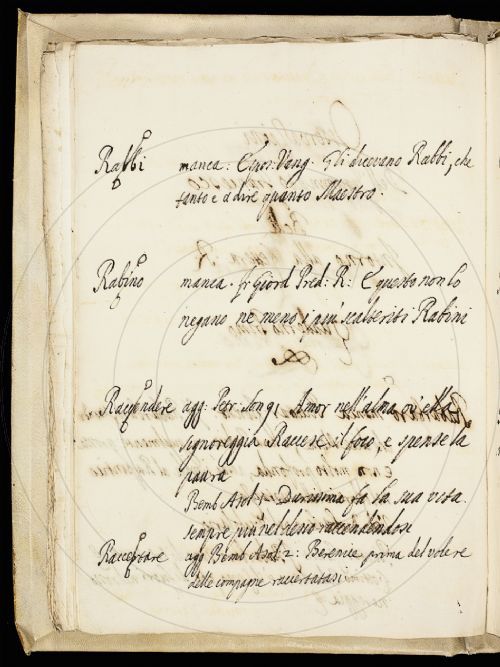 Rabbi manca: Evor: Vang. Gli dicevano Rabbi, che
tanto e a dire quanto Maestro.
Rabino manca. fr Giord Pred: R: E questo non lo
negano ne meno i più scalteriti Rabini
Raccendere agg: Petr: Song: Amor nell'alma, ov' ella
signoreggia Raccese il foco, e spense la
paura
Bemb Asol 1. Durissima fa la sua vita
sempre più nel desio raccendendosi
Raccertare agg Bemb Asol. 2: Berenice prima del volere
delle compagne raccertatasi